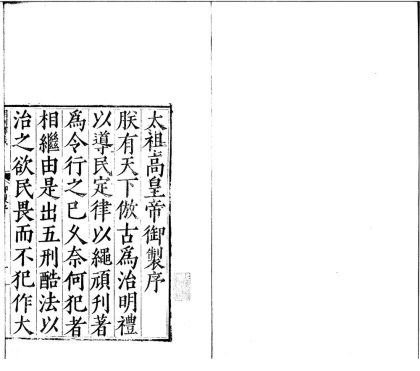 太祖高皇帝御製序
朕有天下倣古爲治明禮
以導民定律以繩頑刋著
爲令行之已久奈何犯者
相繼由是出五刑酷法以
治之欲民畏而不犯作大